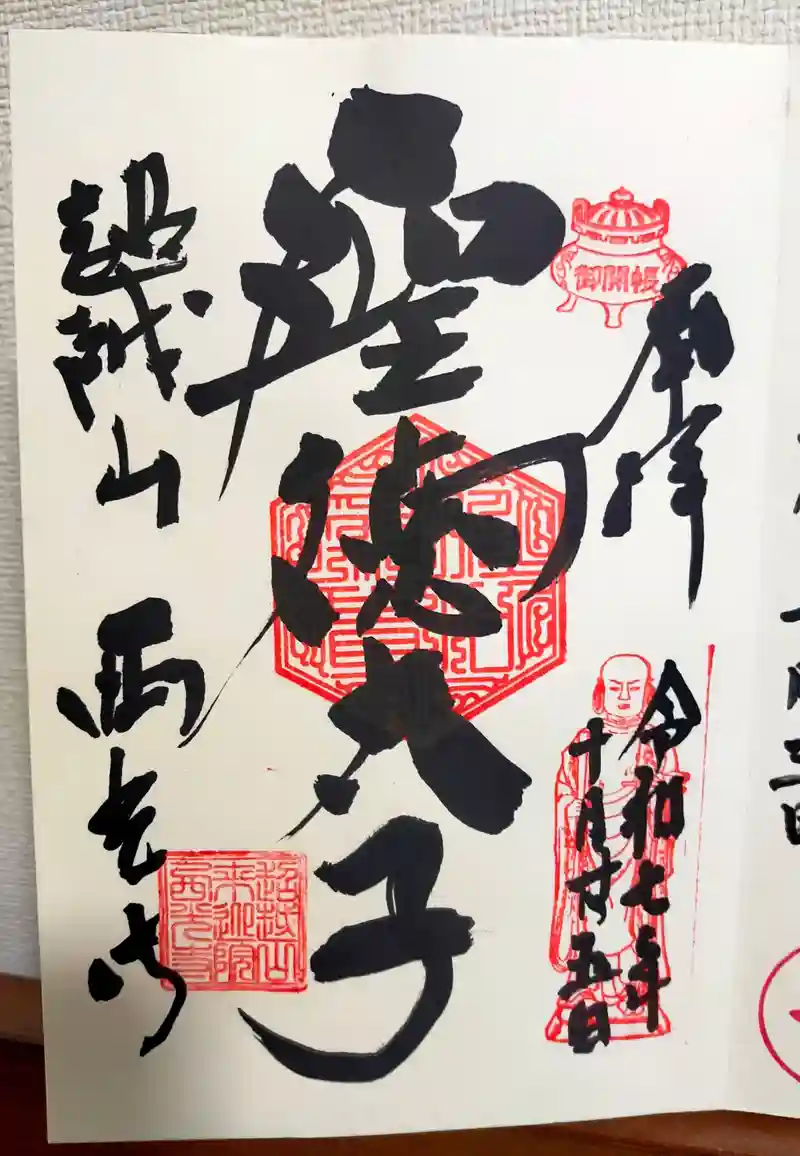 御開帳
奉拝
令和七年
十月廿五日
聖徳太子
超越山 西光寺
超越山
来迎院
西光寺